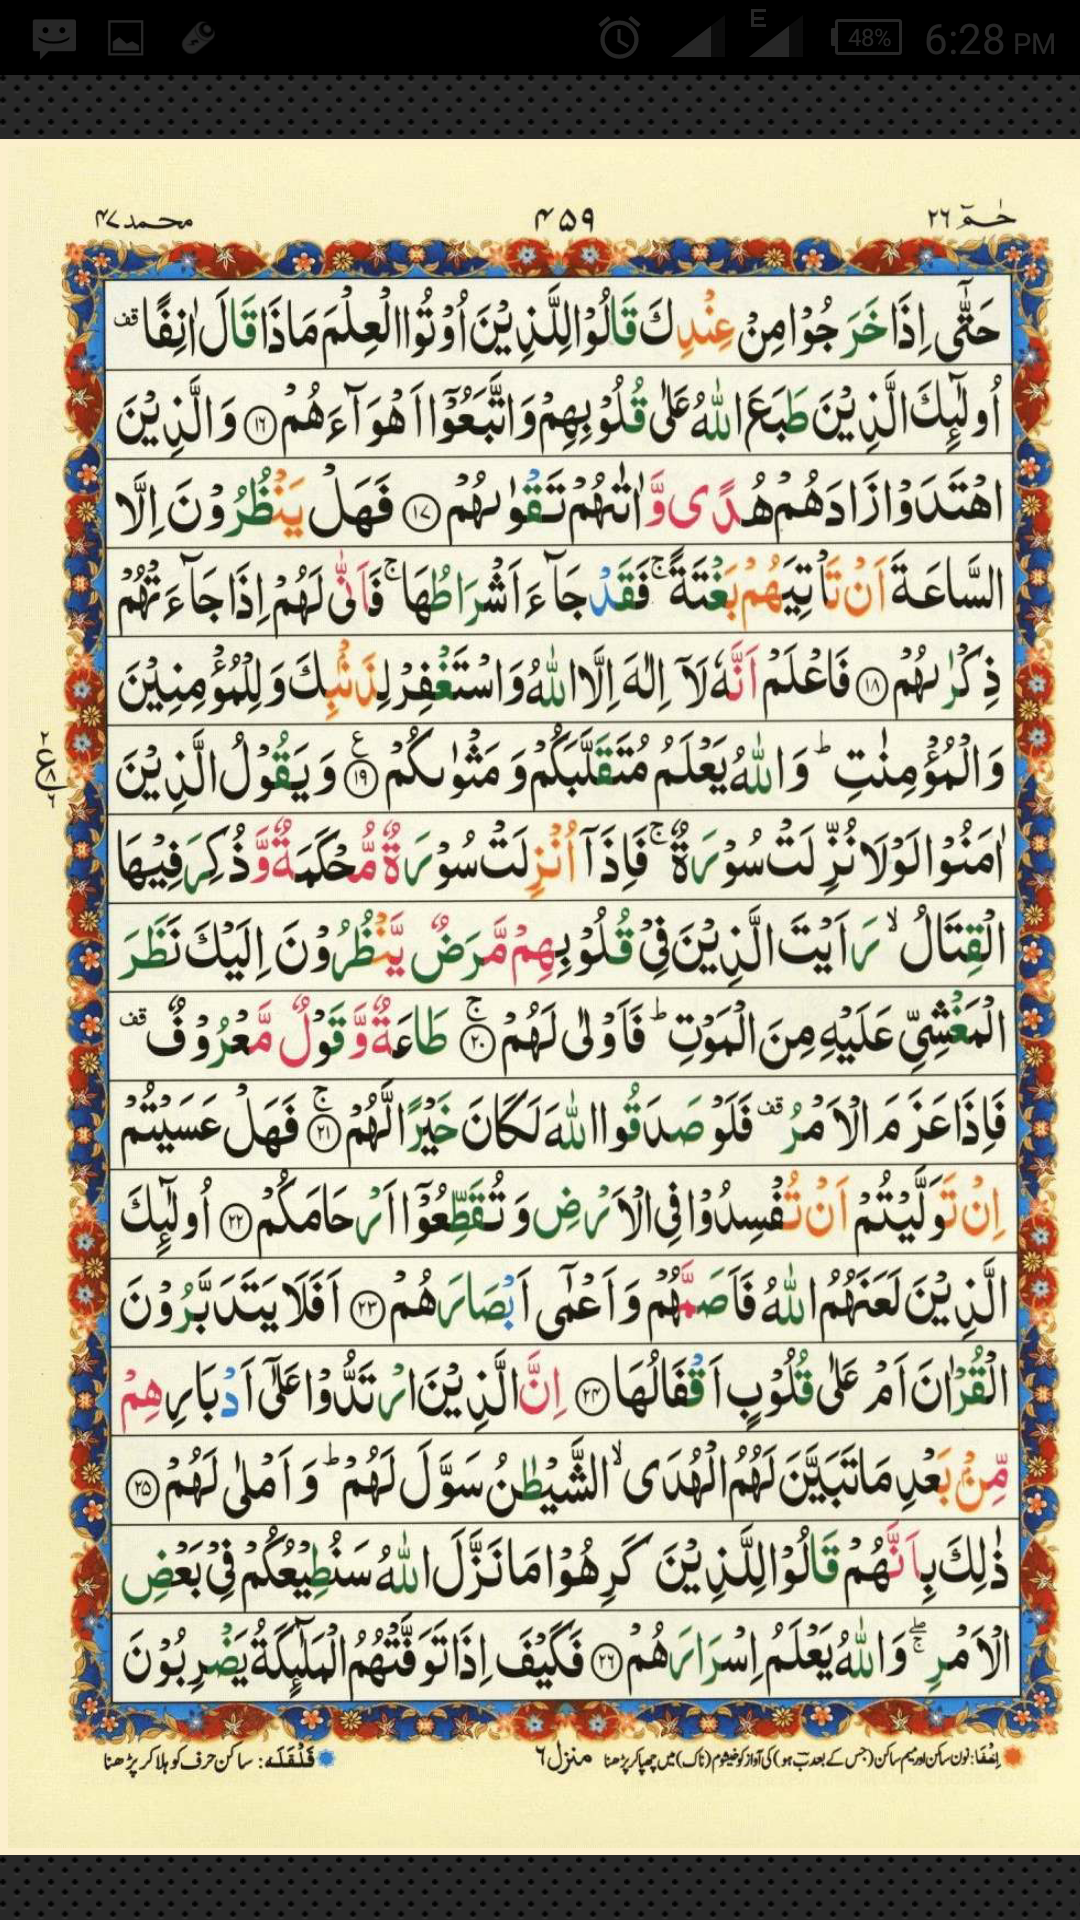 48% 6:28 PM
E
حٰمٓ ٢٦
٤٥٩
محمد ٤٧
حَتّٰۤى اِذَا خَرَجُوْا مِنْ عِنْدِكَ قَالُوْا لِلَّذِيْنَ اُوْتُوا الْعِلْمَ مَاذَا قَالَ اٰنِفًا قف
اُولٰٓئِكَ الَّذِيْنَ طَبَعَ اللّٰهُ عَلٰى قُلُوْبِهِمْ وَاتَّبَعُوْۤا اَهْوَآءَهُمْ ١٦ وَالَّذِيْنَ
اهْتَدَوْا زَادَهُمْ هُدًى وَّاٰتٰىهُمْ تَقْوٰىهُمْ ١٧ فَهَلْ يَنْظُرُوْنَ اِلَّا
السَّاعَةَ اَنْ تَاْتِيَهُمْ بَغْتَةً ۚ فَقَدْ جَآءَ اَشْرَاطُهَا ۚ فَاَنّٰى لَهُمْ اِذَا جَآءَتْهُمْ
ذِكْرٰىهُمْ ١٨ فَاعْلَمْ اَنَّهٗ لَاۤ اِلٰهَ اِلَّا اللّٰهُ وَاسْتَغْفِرْ لِذَنْۢبِكَ وَلِلْمُؤْمِنِيْنَ
وَالْمُؤْمِنٰتِ ؕ وَاللّٰهُ يَعْلَمُ مُتَقَلَّبَكُمْ وَمَثْوٰىكُمْ ١٩ ع وَيَقُوْلُ الَّذِيْنَ
ع ٢ ٨ ٦
اٰمَنُوْا لَوْلَا نُزِّلَتْ سُوْرَةٌ ۚ فَاِذَاۤ اُنْزِلَتْ سُوْرَةٌ مُّحْكَمَةٌ وَّذُكِرَ فِيْهَا
الْقِتَالُ ۙ رَاَيْتَ الَّذِيْنَ فِيْ قُلُوْبِهِمْ مَّرَضٌ يَّنْظُرُوْنَ اِلَيْكَ نَظَرَ
الْمَغْشِيِّ عَلَيْهِ مِنَ الْمَوْتِ ؕ فَاَوْلٰى لَهُمْ ۚ ٢٠ طَاعَةٌ وَّقَوْلٌ مَّعْرُوْفٌ قف
فَاِذَا عَزَمَ الْاَمْرُ قف فَلَوْ صَدَقُوا اللّٰهَ لَكَانَ خَيْرًا لَّهُمْ ۚ ٢١ فَهَلْ عَسَيْتُمْ
اِنْ تَوَلَّيْتُمْ اَنْ تُفْسِدُوْا فِي الْاَرْضِ وَتُقَطِّعُوْۤا اَرْحَامَكُمْ ٢٢ اُولٰٓئِكَ
الَّذِيْنَ لَعَنَهُمُ اللّٰهُ فَاَصَمَّهُمْ وَاَعْمٰۤى اَبْصَارَهُمْ ٢٣ اَفَلَا يَتَدَبَّرُوْنَ
الْقُرْاٰنَ اَمْ عَلٰى قُلُوْبٍ اَقْفَالُهَا ٢٤ اِنَّ الَّذِيْنَ ارْتَدُّوْا عَلٰۤى اَدْبَارِهِمْ
مِّنْۢ بَعْدِ مَا تَبَيَّنَ لَهُمُ الْهُدَى ۙ الشَّيْطٰنُ سَوَّلَ لَهُمْ ؕ وَاَمْلٰى لَهُمْ ٢٥
ذٰلِكَ بِاَنَّهُمْ قَالُوْا لِلَّذِيْنَ كَرِهُوْا مَا نَزَّلَ اللّٰهُ سَنُطِيْعُكُمْ فِيْ بَعْضِ
الْاَمْرِ ۖۚ وَاللّٰهُ يَعْلَمُ اِسْرَارَهُمْ ٢٦ فَكَيْفَ اِذَا تَوَفَّتْهُمُ الْمَلٰٓئِكَةُ يَضْرِبُوْنَ
اِخفَا: نون ساکن اور میم ساکن (جس کے بعد ب ہو) کی آواز کو خیشوم (ناک) میں چھپا کر پڑھنا منزل ٦ قَلْقَلَه: ساکن حرف کو ہلا کر پڑھنا